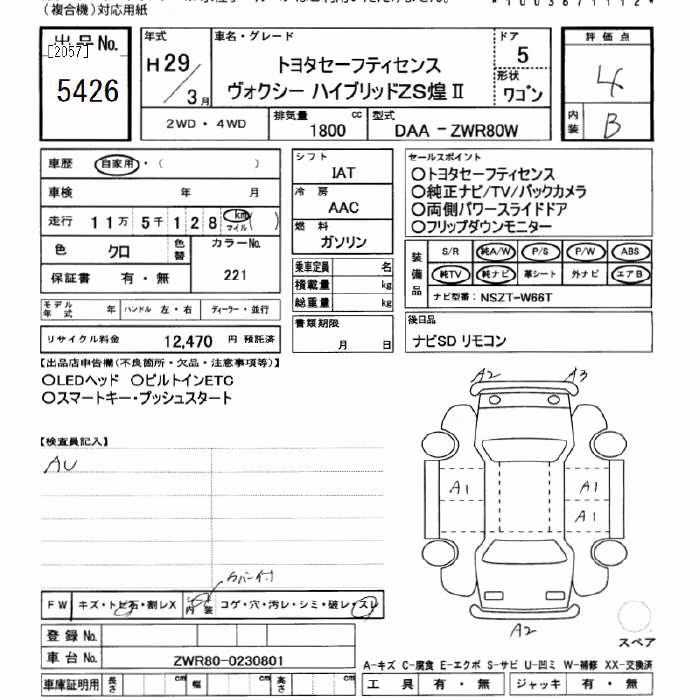 (複合機)対応用紙
*1003671112*
出品No.
[2057]
5426
年式
H29/3月
車名・グレード
トヨタセーフティセンス
ヴォクシー ハイブリッドZS煌Ⅱ
ドア
5
形状
ワゴン
評価点
4
内装
B
2WD・4WD
排気量
1800 cc
型式
DAA-ZWR80W
車歴 自家用・( )
車検 年 月
走行 11万5千128 km マイル ( )
色 クロ
色替
カラーNo.
221
保証書 有・無
モデル年式 年 ハンドル 左・右 ディーラー・並行
リサイクル料金 12,470 円 預託済
シフト
IAT
冷房
AAC
燃料
ガソリン
乗車定員 名
積載量 kg
総重量 kg
書類期限
月 日
セールスポイント
○トヨタセーフティセンス
○純正ナビ/TV/バックカメラ
○両側パワースライドドア
○フリップダウンモニター
装備品
S/R 純A/W P/S P/W ABS
純TV 純ナビ 革シート 外ナビ エアB
ナビ型番: NSZT-W66T
後日品
ナビSD リモコン
【出品店申告欄(不良箇所・欠品・注意事項等)】
○LEDヘッド ○ビルトインETC
○スマートキー・プッシュスタート
【検査員記入】
AU
A2 A3
A1 A1
A1
A2
スペア
FW キズ・トビ石・割レX
内装 コゲ・穴・汚レ・シミ・破レ・スレ
登録No.
車台No. ZWR80-0230801
車庫証明用 長さ cm 幅 cm 高さ cm
A-キズ C-腐食 E-エクボ S-サビ U-凹ミ W-補修 XX-交換済
工具 有・無 ジャッキ 有・無